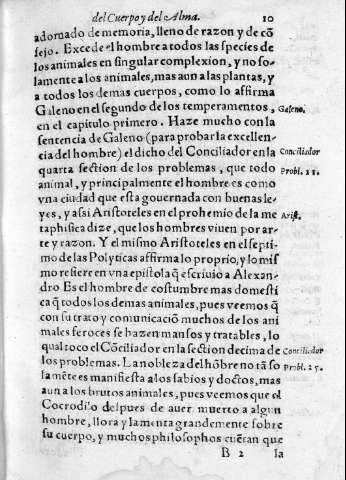 del Cuerpo y del Alma. 10
adornado de memoria, lleno de razon y de cõ
sejo. Excede el hombre a todos las species de
los animales en singular complexion, y no so-
lamente a los animales, mas aun a las plantas, y
a todos los demas cuerpos, como lo affirma
Galeno en el segundo de los temperamentos, Galeno.
en el capitulo primero. Haze mucho con la
sentencia de Galeno (para probar la excellen-
cia del hombre) el dicho del Conciliador en la Conciliador
quarta section de los problemas, que todo Probl. 11.
animal, y principalmente el hombre es como
vna ciudad que esta gouernada con buenas le-
yes, y assi Aristoteles en el prohemio de la me Arist.
taphisica dize, que los hombres viuen por ar-
te y razon. Y el mismo Aristoteles en el septi
mo de las Polyticas affirma lo proprio, y lo mis
mo refiere en vna epistola q̃ escriuio a Alexan
dro Es el hombre de costumbre mas domesti
ca q̃ todos los demas animales, pues veemos q̃
con su trato y comunicaciõ muchos de los ani
males feroces se hazen mansos y tratables, lo
qual toco el Cõciliador en la section decima de Conciliador
los problemas. La nobleza del hõbre no tã so Probl. 25.
la mẽte es manifiesta a los sabios y doctos, mas
aun a los brutos animales, pues veemos que el
Cocrodilo despues de auer muerto a algun
hombre, llora y lamenta grandemente sobre
su cuerpo, y muchos philosophos cuẽran que
B 2 la